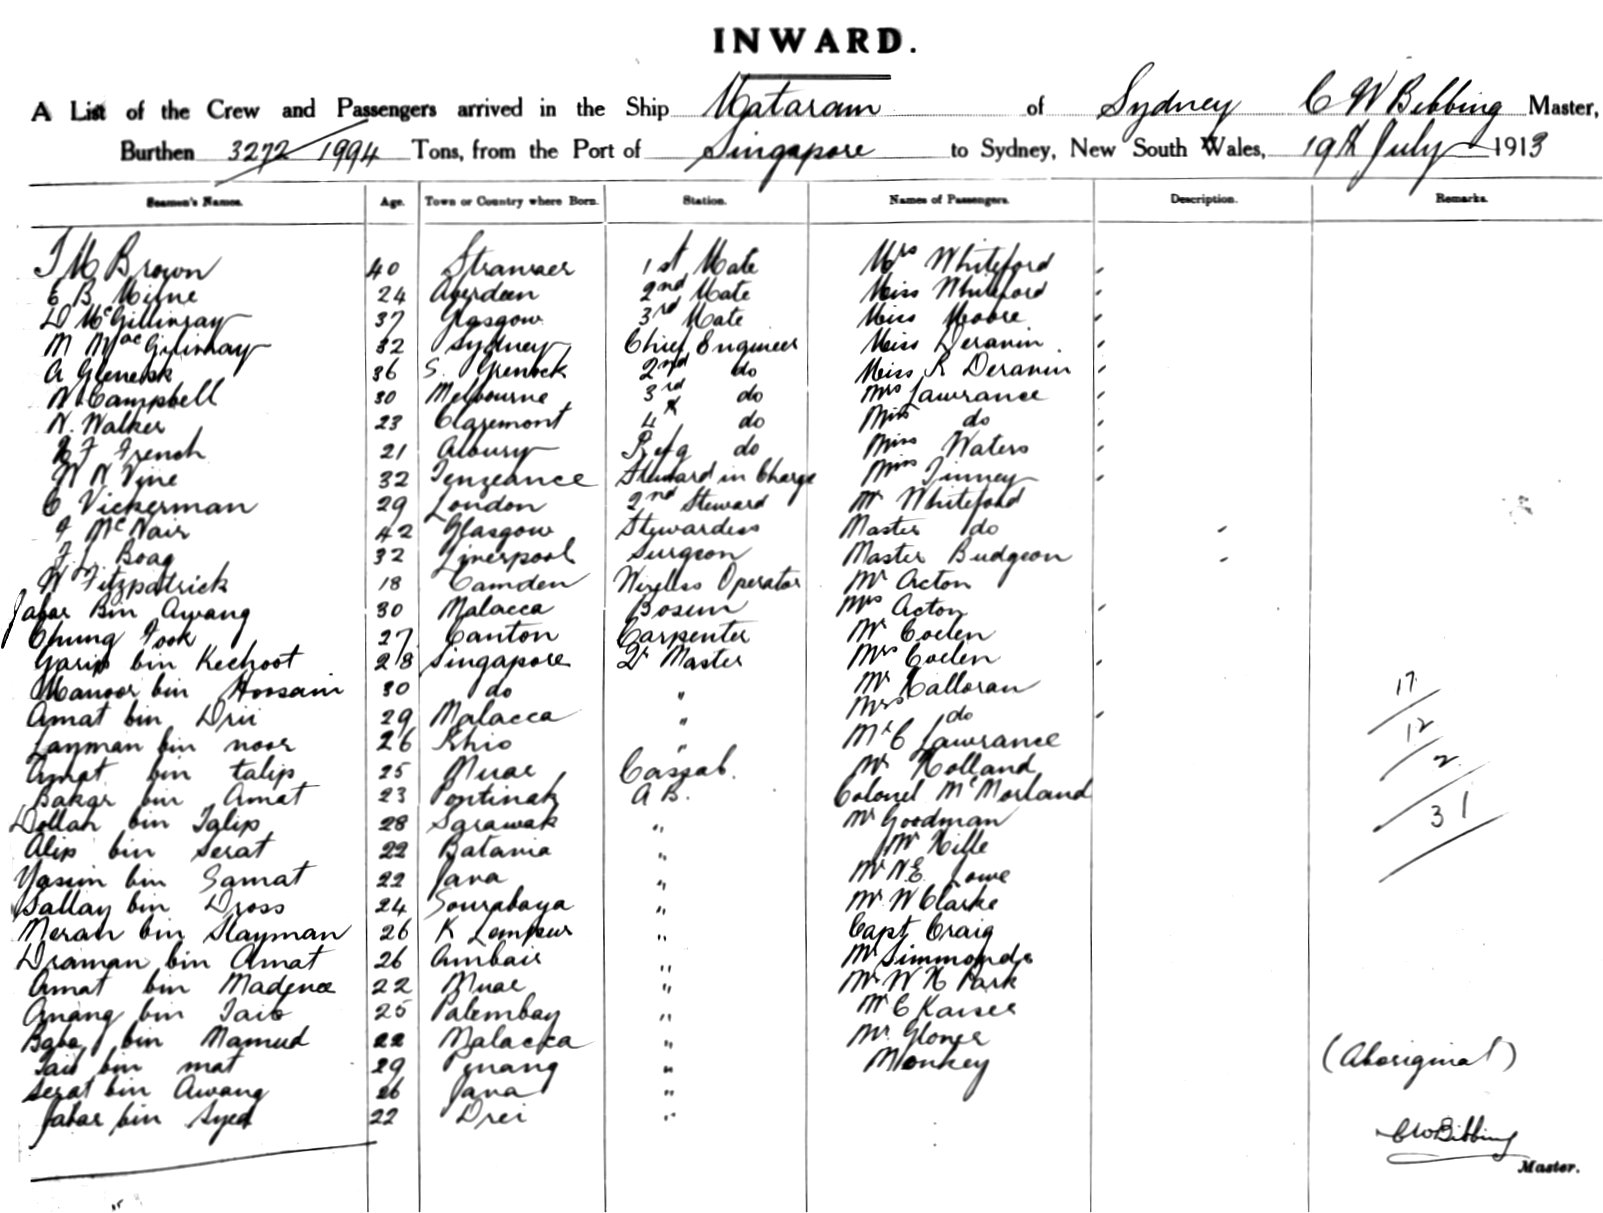 INWARD.
A List of the Crew and Passengers arrived in the Ship Mataram of Sydney C W Bibbing Master,
Burthen 3272/1994 Tons, from the Port of Singapore to Sydney, New South Wales, 19th July 1913
Seamen's Names. Age. Town or Country where Born. Station. Names of Passengers. Description. Remarks.
J M Brown 40 Stranraer 1st Mate Mrs Whiteford
E B Milne 24 Aberdeen 2nd Mate Miss Whiteford
D McGillivray 37 Glasgow 3rd Mate Miss Moore
M MacGillivray 32 Sydney Chief Engineer Miss Deranin
A Glenesk 36 S. Grenock 2nd do Miss R Deranin
N Campbell 30 Melbourne 3rd do Mrs Lawrance
N. Walker 23 Claremont 4th do Miss do
F French 21 Albury Refg do Miss Waters
W N Vine 32 Penzeance Steward in Charge Miss Finney
C Vickerman 29 London 2nd Steward Mr Whiteford
McNair 42 Glasgow Stewardess Master do
F J Boag 32 Liverpool Surgeon Master Budgeon
W Fitzpatrick 18 Camden Wireless Operator Mr Acton
Jabar Bin Awang 30 Malacca Bosun Mrs Acton
Chung Fook 27 Canton Carpenter Mr Coelen
Garip bin Kechoot 28 Singapore Qr Master Mrs Coelen
Manoor bin Hoosain 30 do " Mr Halloran 17
Amat bin Drii 29 Malacca " Mrs do 12
Layman bin noor 26 Rhio " Mr C Lawrance 2
Amat bin talip 25 Muar Cassab. Mr Holland
Bakar bin Amat 23 Pontinak A B. Colonel McMorland 31
Dollah bin Talip 28 Sarawak " Mr Goodman
Alip bin Serat 22 Batavia " Mr Hille
Yasim bin Samat 22 Java " Mr N.E. Lowe
Sallay bin Dross 24 Sourabaya " Mr W Clarke
Meran bin Slayman 26 K Lempur " Capt Craig
Draman bin Amat 26 " Mr Simmonds
Amat bin Madena 22 Muar " Mr W H Park
Anang bin Taib 25 Palembay " Mr C Kaiser
Baba bin Mamud 22 Malacca " Mr Gloner
Taib bin mat 29 Pinang " Monkey (Aboriginal)
Serat bin Awang 26 Java "
Jabar bin Syed 22 Drei "
C W Bibbing
Master.